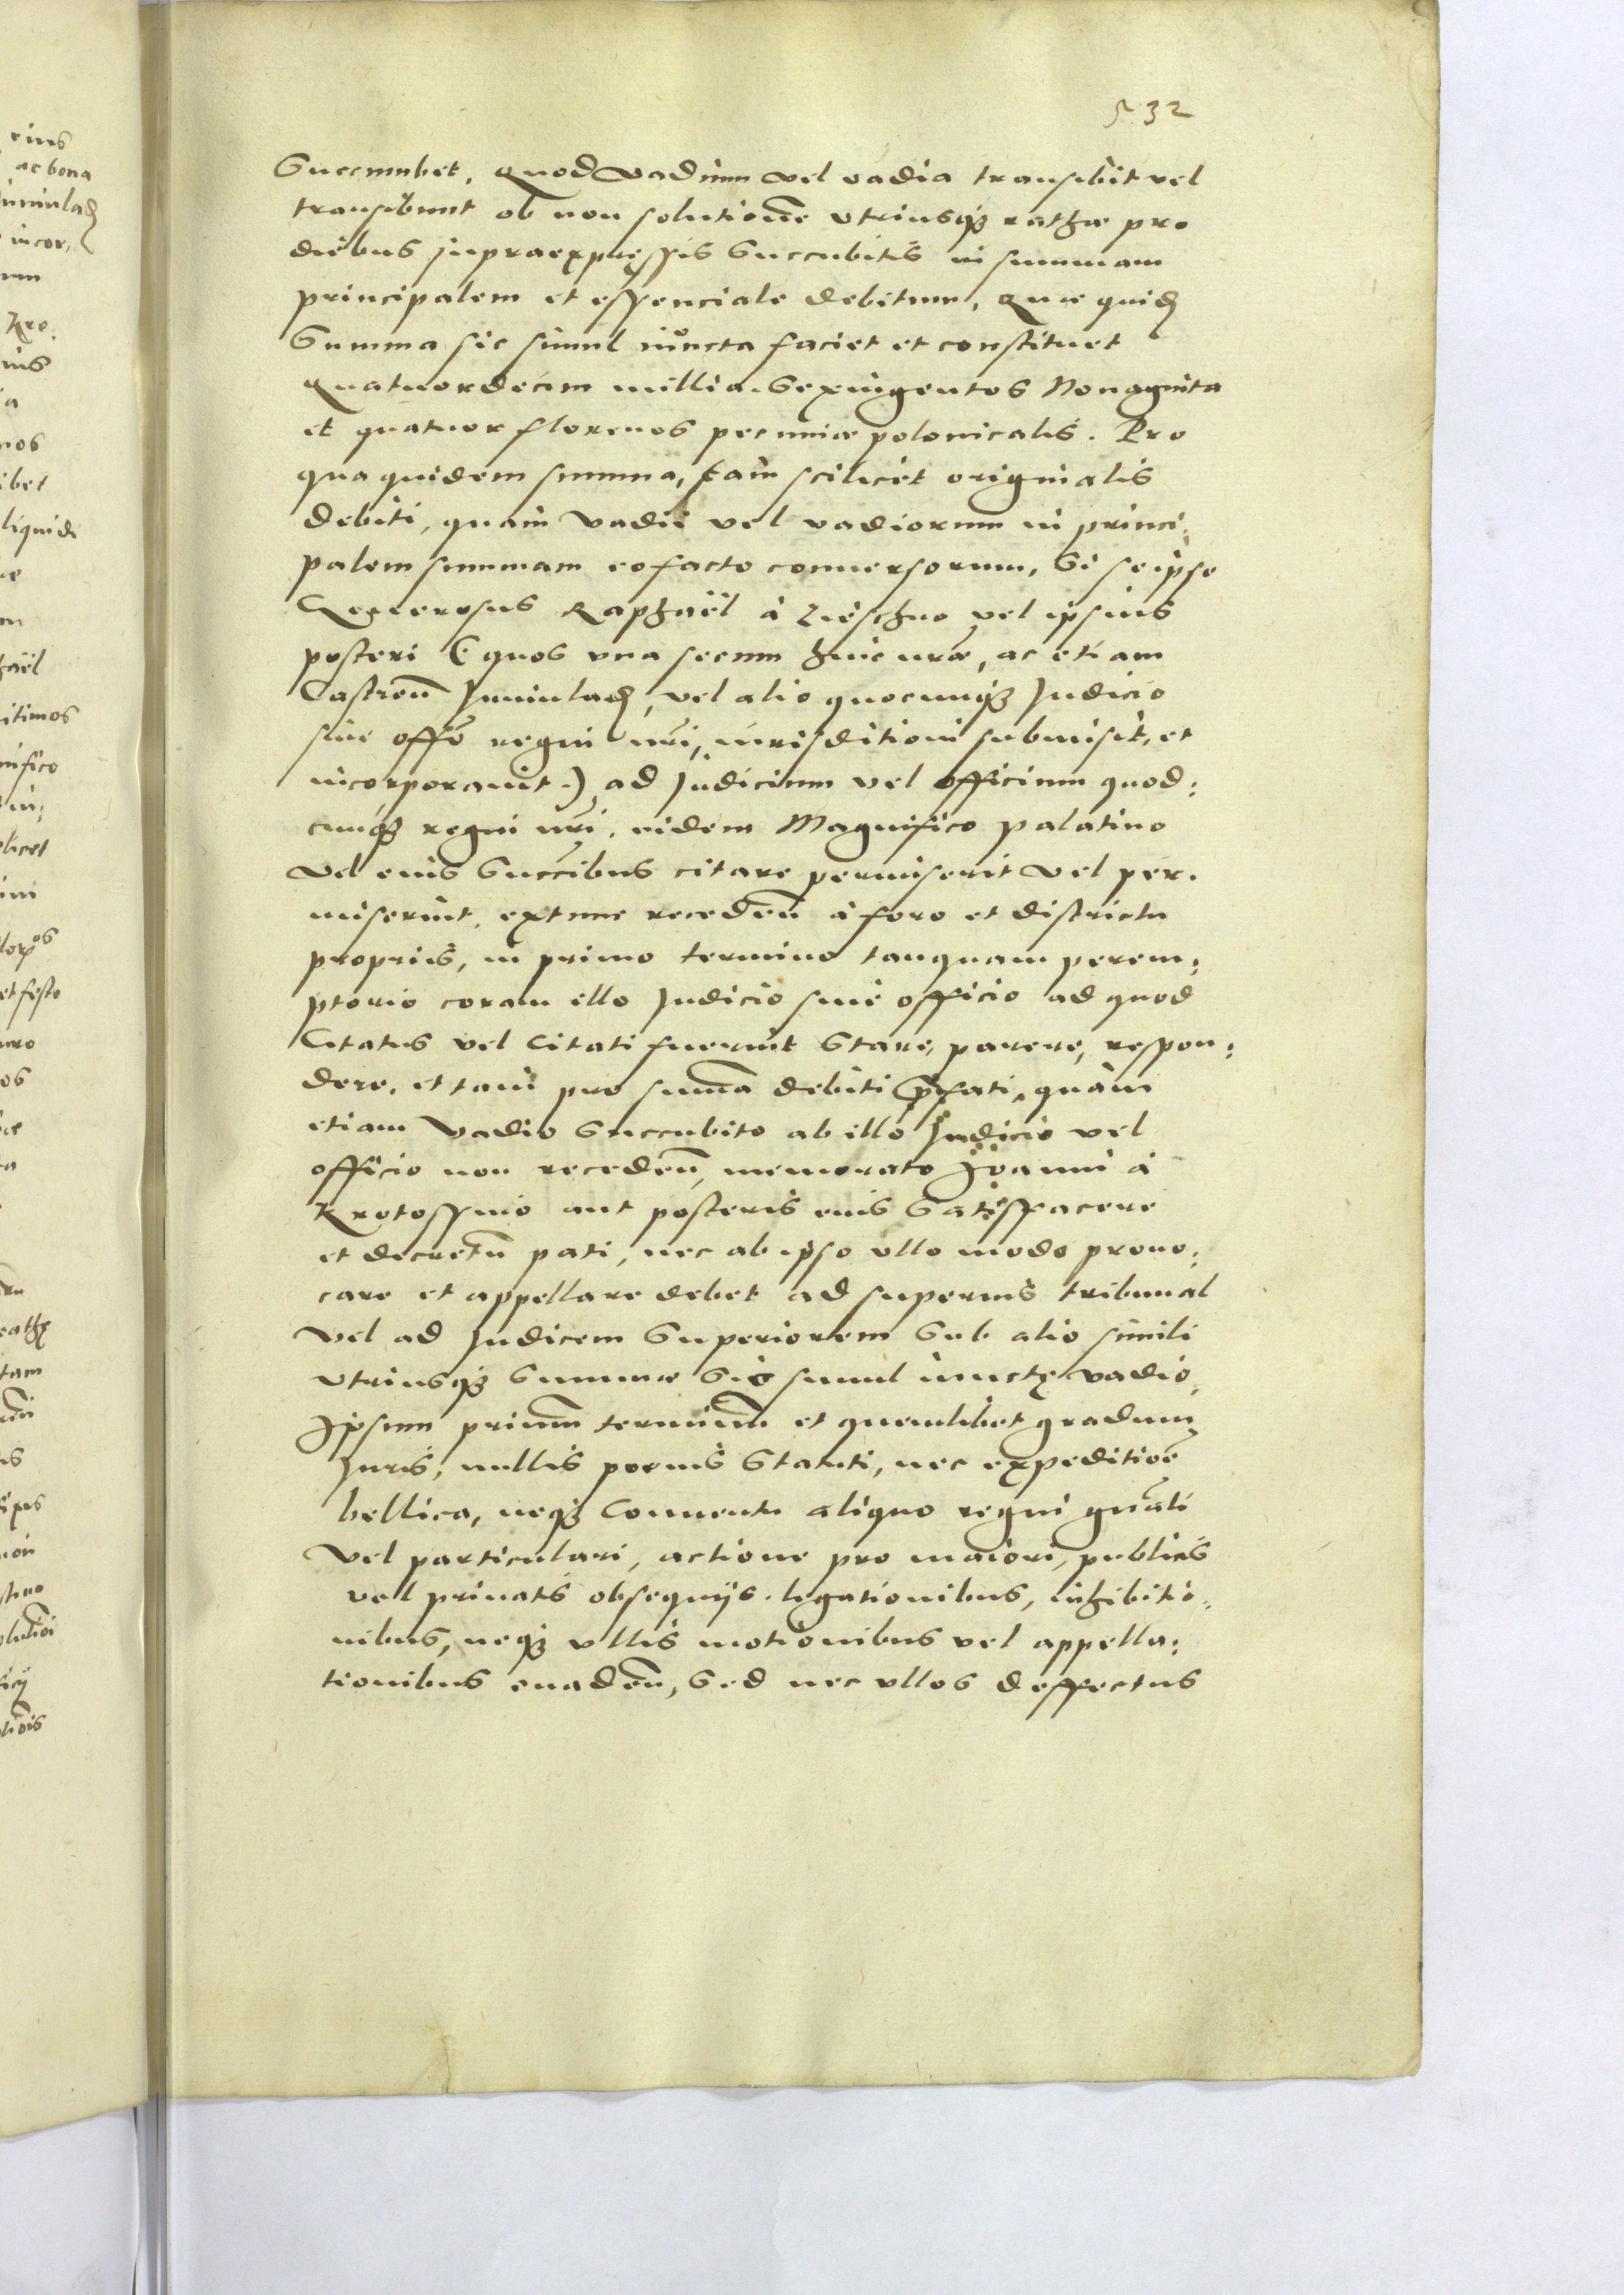 532
Succumbet. Quod vadium vel vadia transibit vel
transibunt ob non solutionē vtriusqз rathæ pro
diebus supraexpressis Succubitis in summam
principalem et essenciale debitum. Quæ quid̄
Summa sic simul iuncta faciet et constituet
Quatuordecim millia Sexingentos Nonaginta
et quatuor florenos pecuniæ polonicalis. Pro
qua quidem summa, tam scilicet originalis
debiti, quàm vadii vel vadiorum in princi:
palem summam eo facto conuersorum, Si se ipse
Generosus Raphaël à Lieschno vel ipsius
posteri (quos vna secum huic nræ, ac etiam
Castreñ Juniulad̄, vel alio quocunqз Judicio
siue offō regni nri, iurisditioni submisit, et
incorporauit.) ad Judicium vel officium quod:
cunqз regni nri, eidem Magnifico palatino
vel eius Succibus citare permiserit vel per.
miserint. extunc recedeñ à foro et districtu
propriis, in primo termino tanquam perem:
ptorio coram illo Judicio siue officio ad quod
Citatus vel Citati fuerint Stare, parere, respon:
dere, et tam pro suma debiti p̄fati, quàm
etiam vadio Succubito ab illo Judicio vel
officio non recedeñ, memorato Joanni à
Krotossino aut posteris eius Satisffacere
et decretū pati, nec ab ipso vllo modo prouo:
care et appellare debet ad superius tribunal
vel ad Judicem Superiorem Sub alio simili
vtriusqз Summæ Sic simul iunctę vadio,
Ipsum primū terminū et quemlibet gradum
Juris, nullis poenis Statuti, nec expeditioē
bellica, neqз Conuentu aliquo regni gnali
vel particulari, actione pro maiori, publicis
vel priuatis obsequijs. legationibus, inhibitio:
nibus, neqз vllis motionibus vel appella:
tionibus euadeñ, Sed nec vllos deffectus
eius
ac bona
iuniulad̄
incor,
Kro.
nos
liquide
haël
itimos
nifico
licet
et festo
tam